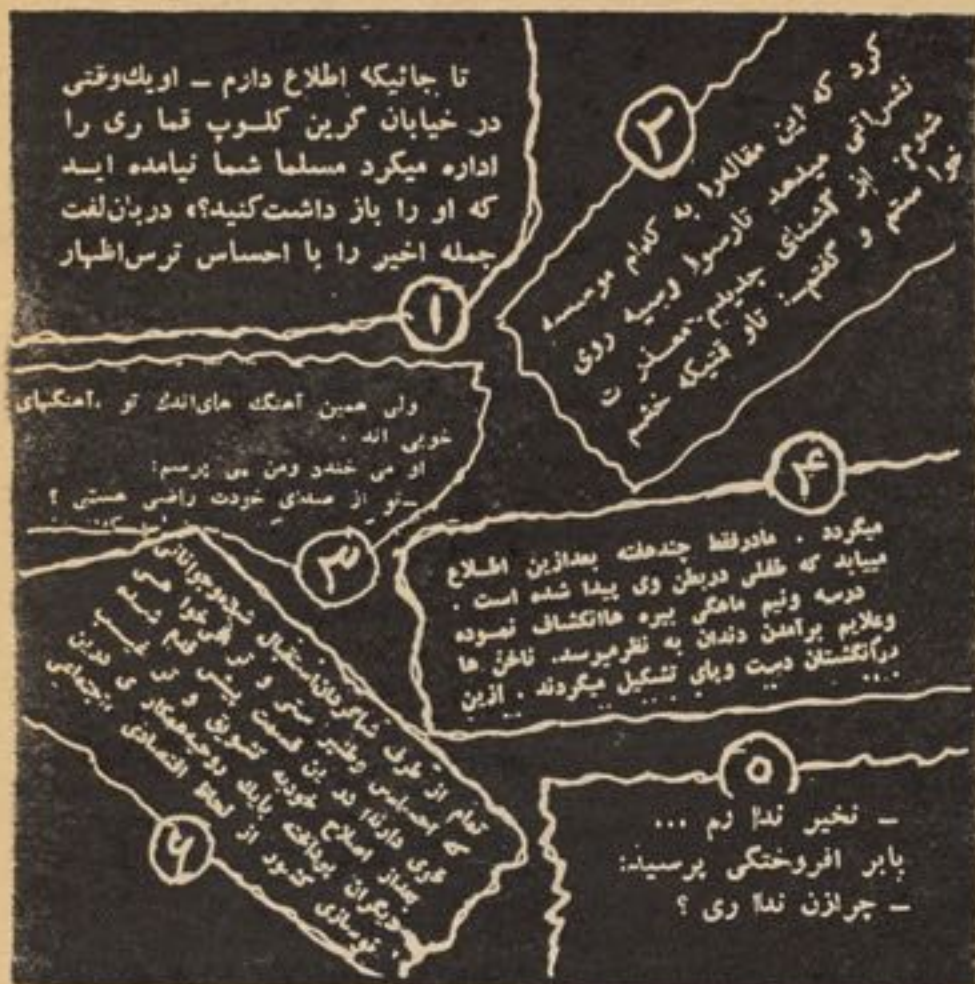 تا جائیکه اطلاع دارم - اویك وقتی
در خیابان گرین کلوپ قما ری را
اداره میکرد مسلما شما نیامده اید
که او را باز داشت کنید؟» دربان لفت
جمله اخیر را با احساس ترس اظهار
۱
۲
کرد که این مقاله را به کدام موسسه
نشراتی میدهد تارسوا وسیه روی
شوم. از آشنای جدیدم معذر ت
خوا ستم و گفتم: تاو قتیکه خشم
ولی همین آهنگ های اندك تو ،آهنگهای
خوبی اند .
او می خندد ومن می پرسم:
-تو از صدای خودت راضی هستی ؟
۳
۴
میگردد . مادر فقط چند هفته بعدازین اطلاع
مییابد که طفلی دربطن وی پیدا شده است .
درسه ونیم ماهگی بیره ها انکشاف نموده
وعلایم برآمدن دندان به نظر میرسد. ناخن ها
درانگشتان دست وپای تشکیل میگردند . ازین
۵
- نخیر ندا رم ...
بابر افروختگی پرسید:
- چرازن ندا ری ؟
تمام از طرف شاگردان استقبال شده وجوانانی
که احساس وطنپر ستی و تر قی خوا هی
قوی دارند در ین قسمت پیش قدم شده
بعداز اصلاح خودبه تشویق و تر غیب
دیگران پرداخته بایك روحیه همکار ی درین
نوسازی کشور از لحاظ اقتصادی اجتماعی
۶